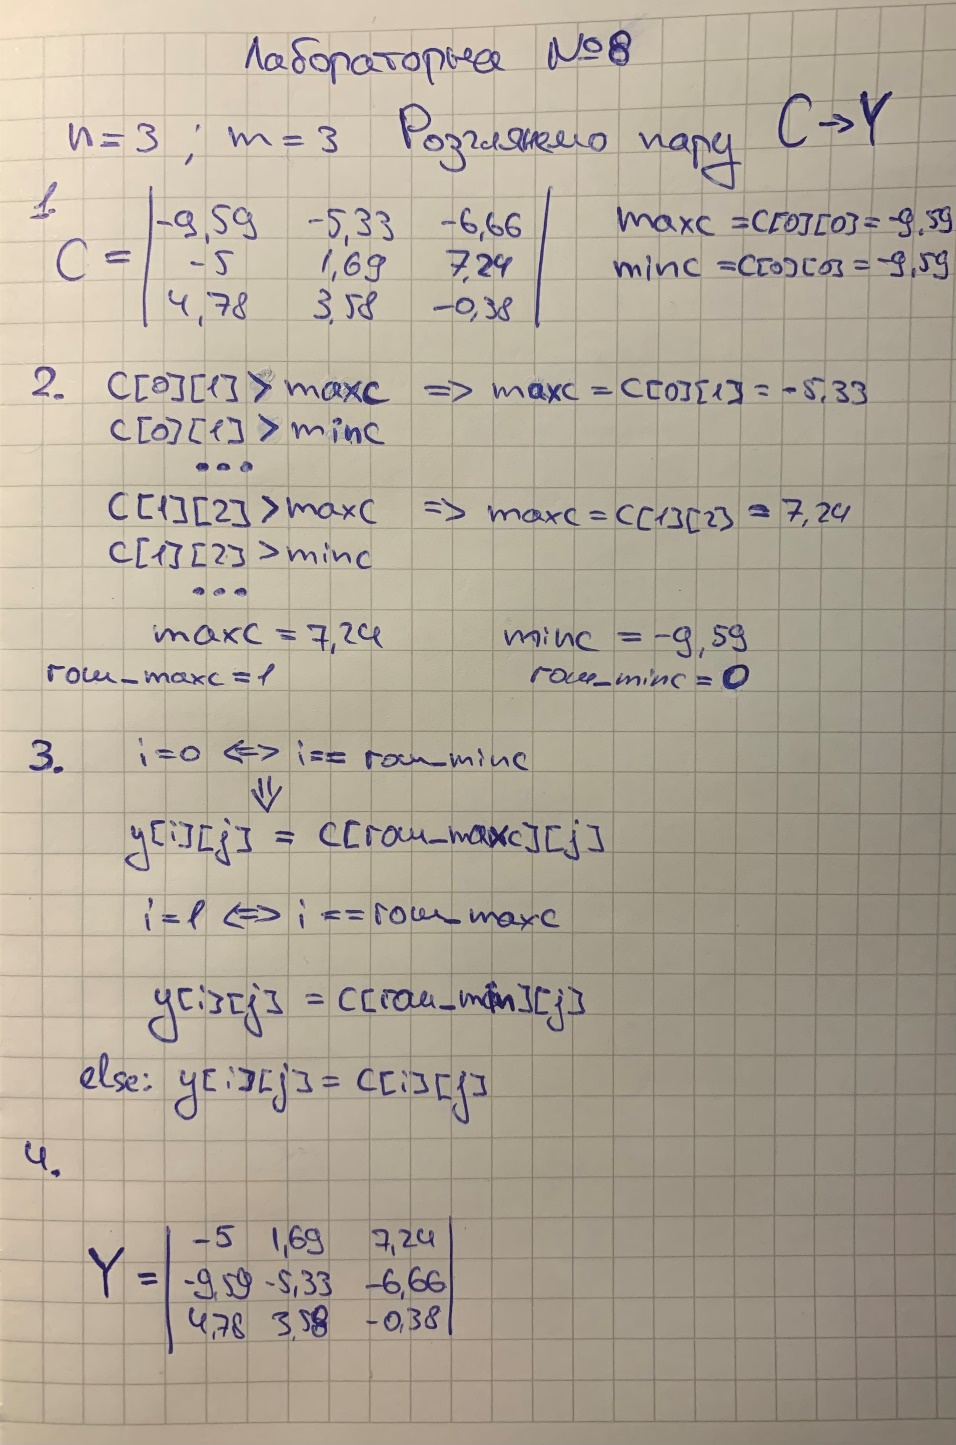 Лабораторна №8
n=3 ; m=3 Розглянемо пару C→Y
1.
C = |-9,59 -5,33 -6,66| maxc =C[0][0]= -9,59
-5 1,69 7,24 minc =C[0][0] = -9,59
4,78 3,58 -0,38
2. C[0][1] > maxc => maxc = C[0][1] = -5,33
C[0][1] > minc
...
C[1][2] > maxc => maxc = C[1][2] = 7,24
C[1][2] > minc
...
maxc = 7,24 minc = -9,59
row_maxc = 1 row_minc = 0
3. i=0 <=> i== row_minc
⇓
y[i][j] = C[row_maxc][j]
i=1 <=> i ==row_maxc
y[i][j] = C[row_min][j]
else: y[i][j] = C[i][j]
4.
-5 1,69 7,24
Y = |-9,59 -5,33 -6,66|
4,78 3,58 -0,38